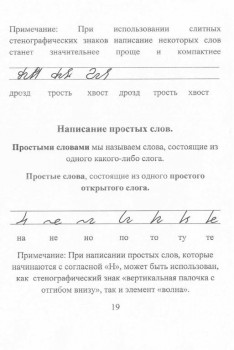 Примечание: При использовании слитных
стенографических знаков написание некоторых слов
станет значительнее проще и компактнее
дрозд трость хвост дрозд трость хвост
Написание простых слов.
Простыми словами мы называем слова, состоящие из
одного какого-либо слога.
Простые слова, состоящие из одного простого
открытого слога.
на не но по то ту те
Примечание: При написании простых слов, которые
начинаются с согласной «Н», может быть использован,
как стенографический знак «вертикальная палочка с
отгибом внизу», так и элемент «волна».
19